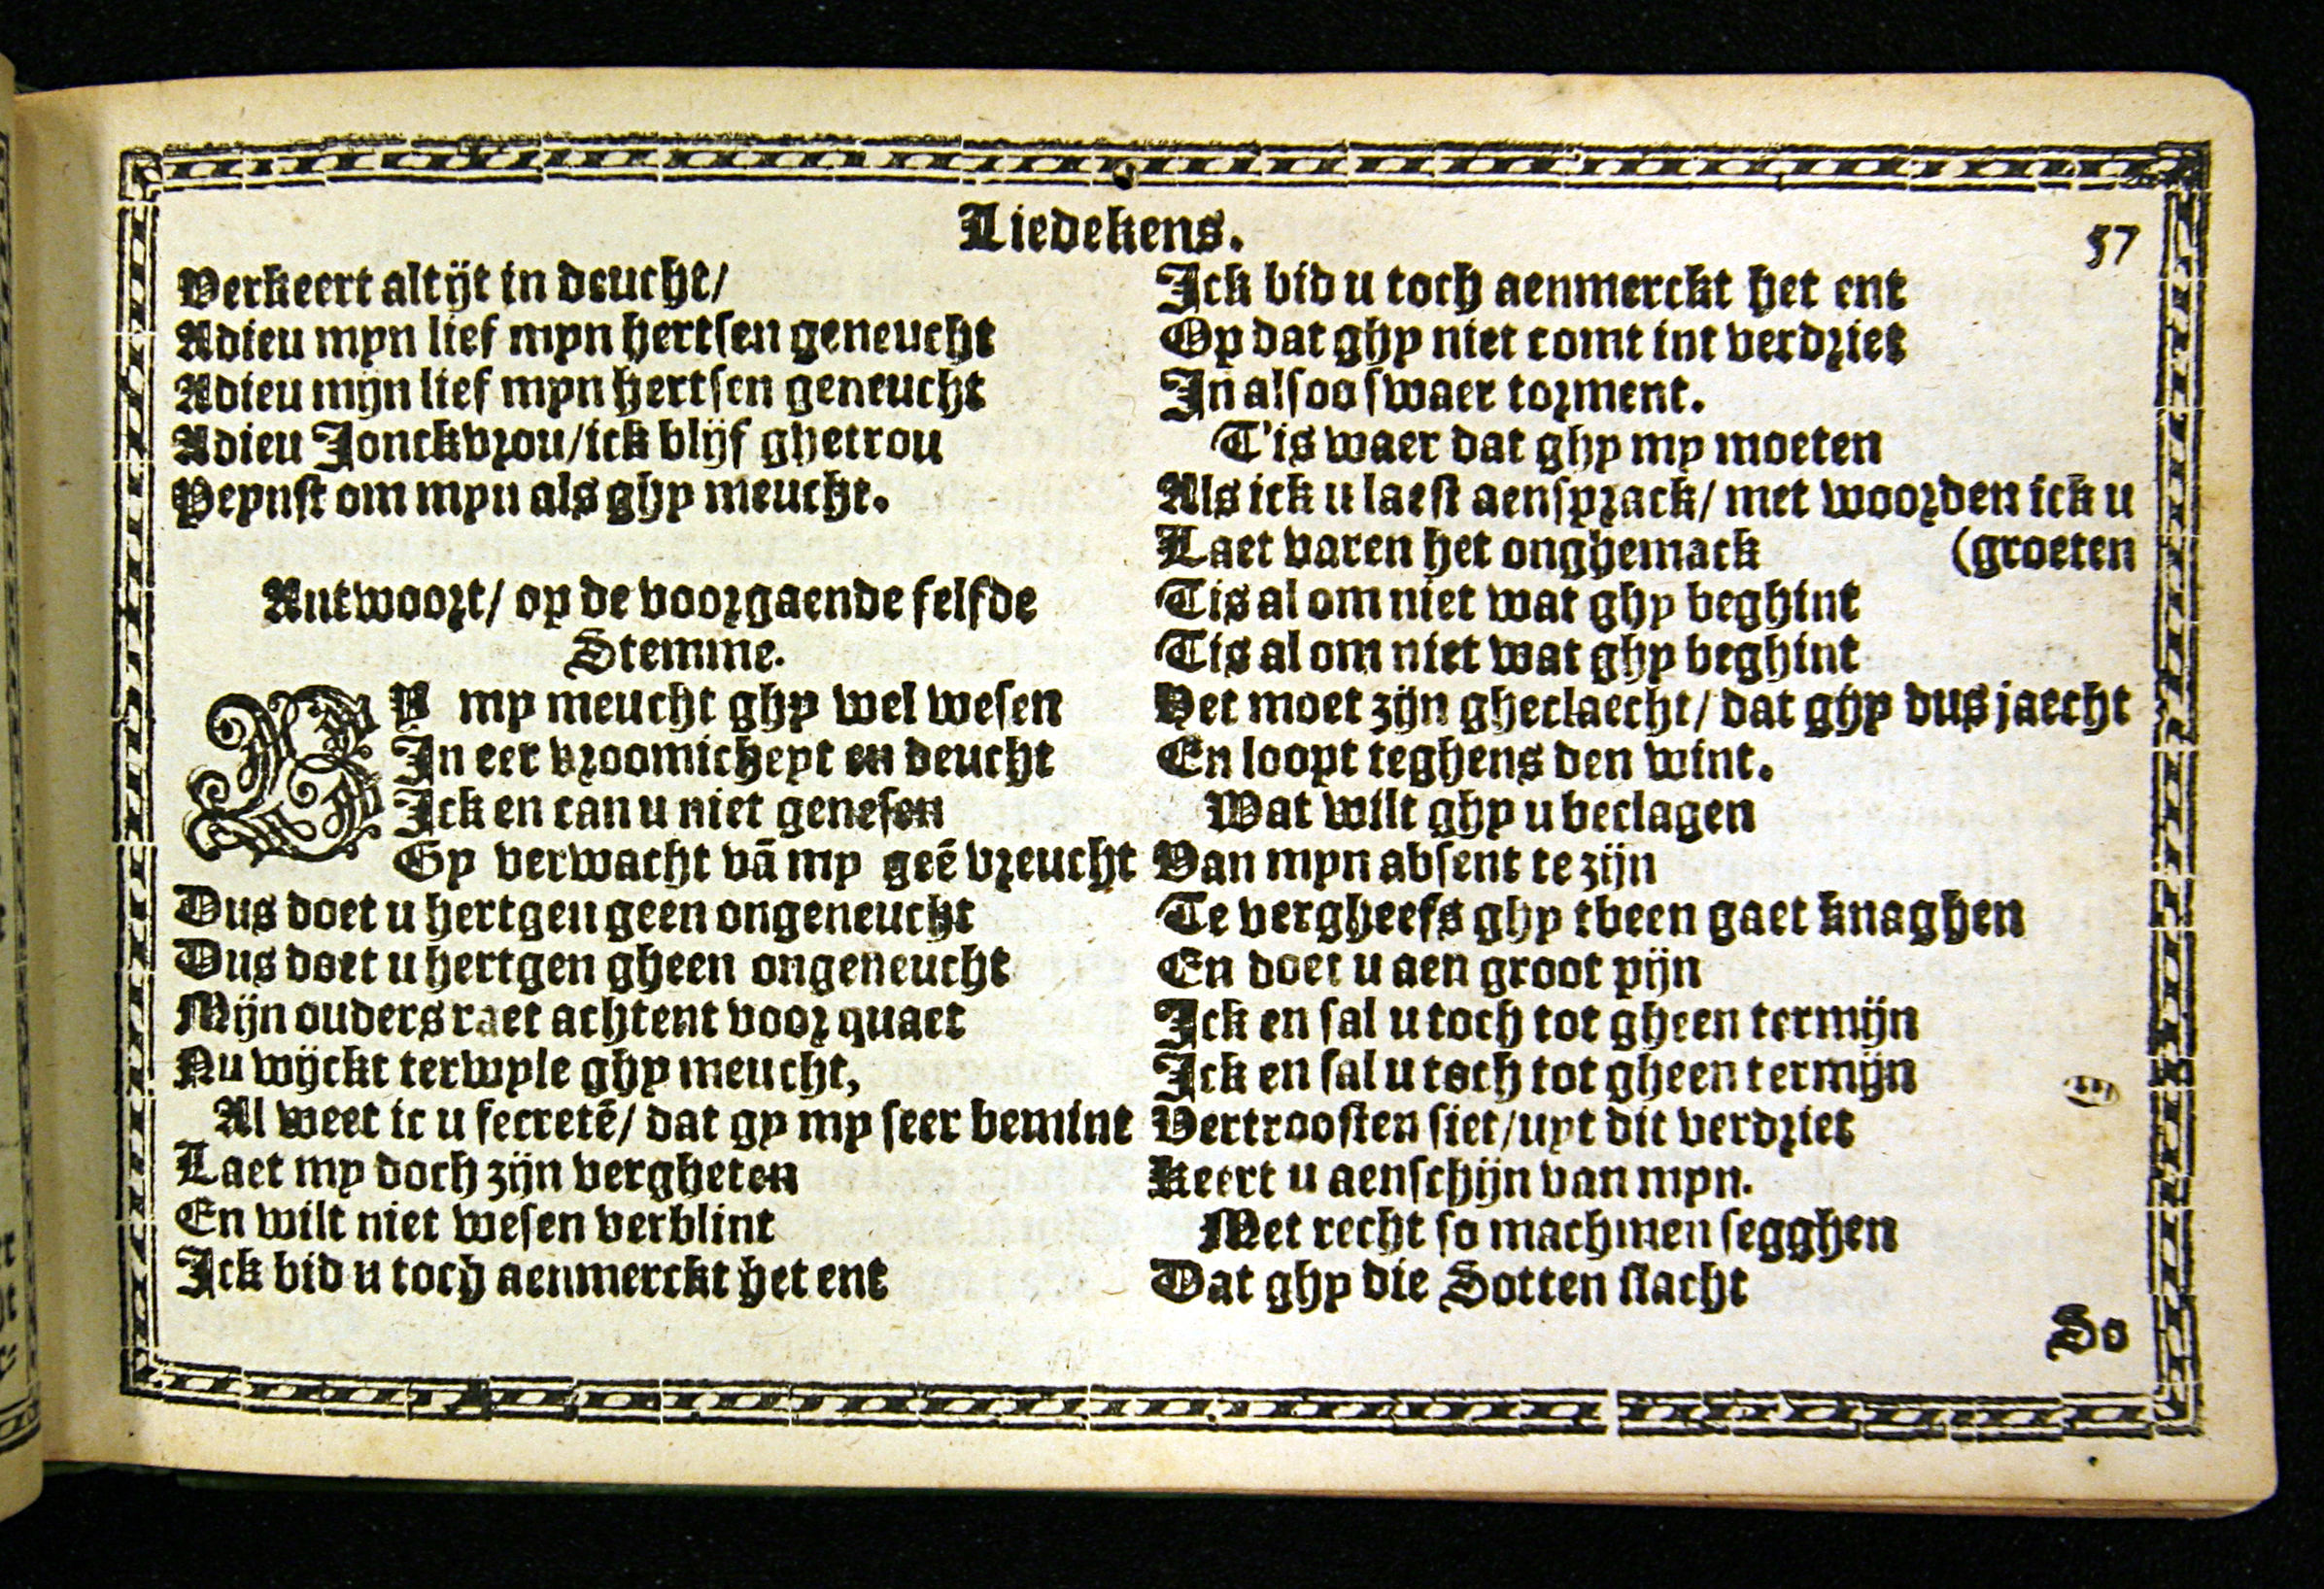 Liedekens.
57
Verkeert altijt in deucht/
Adieu myn lief myn hertsen geneucht
Adieu mijn lief myn hertsen geneucht
Adieu Jonckvrou/ick blijf ghetrou
Peynst om myn als ghy meucht.
Antwoort/ op de voorgaende selfde
Stemme.
BY my meucht ghy wel wesen
In eer vroomicheyt en deucht
Ick en can u niet genesen
Gy verwacht vā my geē vreucht
Dus doet u hertgen geen ongeneucht
Dus doet u hertgen gheen ongeneucht
Mijn ouders raet achtent voor quaet
Nu wijckt terwyle ghy meucht,
Al weet ic u secretē/ dat gy my seer bemint
Laet my doch zijn vergheten
En wilt niet wesen verblint
Ick bid u toch aenmerckt het ent
Ick bid u toch aenmerckt het ent
Op dat ghy niet comt int verdriet
In alsoo swaer torment.
T'is waer dat ghy my moeten
Als ick u laest aensprack/ met woorden ick u
Laet varen het onghemack (groeten
Tis al om niet wat ghy beghint
Tis al om niet wat ghy beghint
Het moet zijn gheclaecht/ dat ghy dus jaecht
En loopt teghens den wint.
Wat wilt ghy u beclagen
Van myn absent te zijn
Te vergheefs ghy tbeen gaet knaghen
En doet u aen groot pijn
Ick en sal u toch tot gheen termijn
Ick en sal u toch tot gheen termijn
Vertroosten siet/uyt dit verdriet
Keert u aenschijn van myn.
Met recht so machmen segghen
Dat ghy die Sotten slacht
So